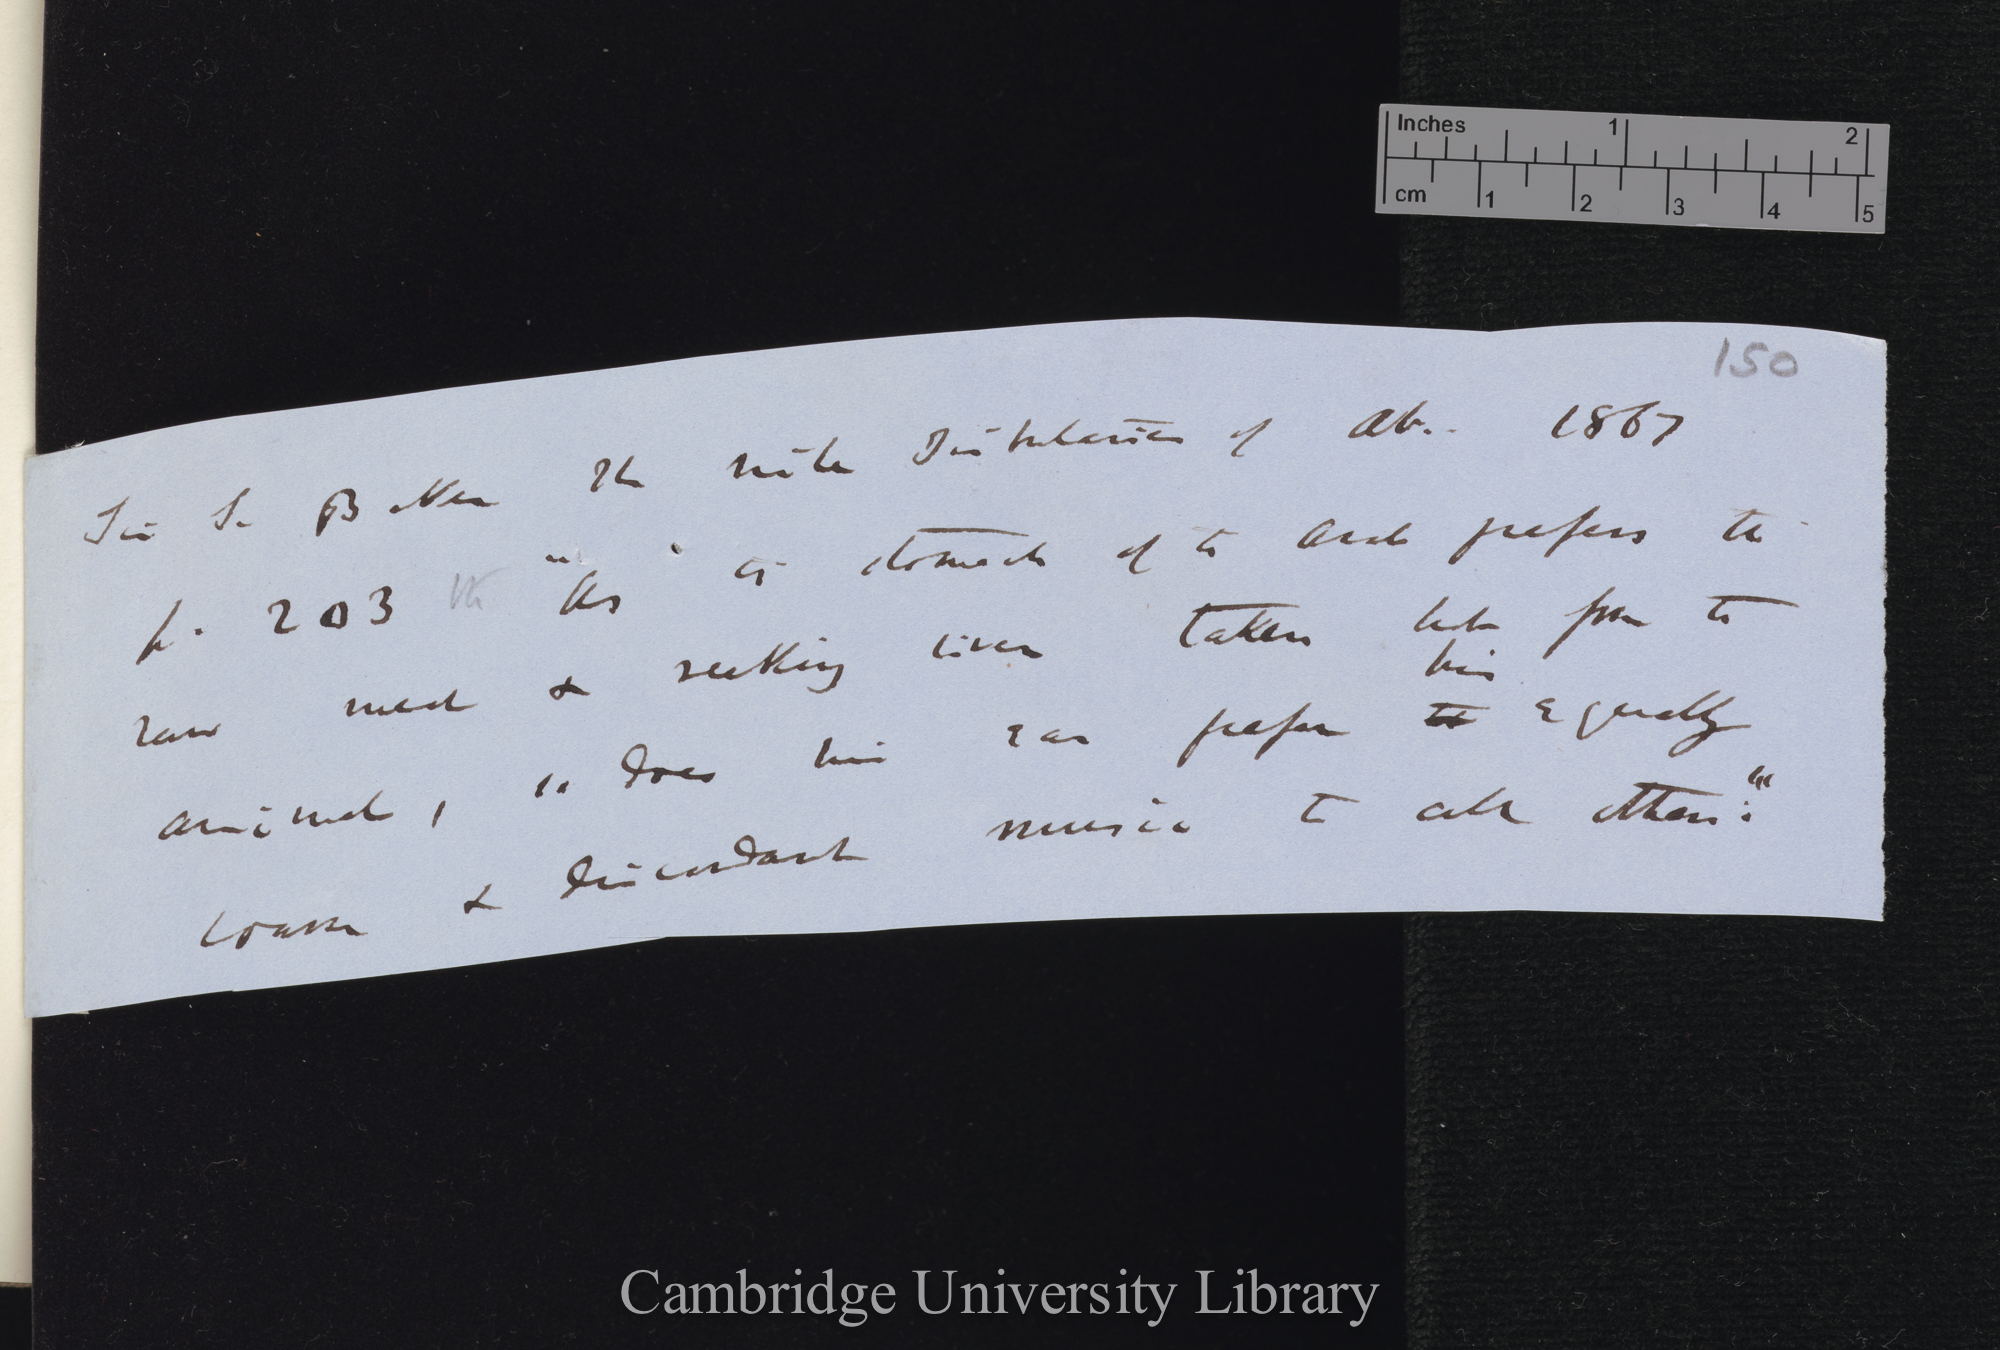 150
Sir S. Baker The Nile Tributaries of Ab.. 1867
p. 203 "As as stomach of the Arab prefers the
raw meat & reeking liver taken hot from the
animal, " does his ear prefer the his equally
coarse & discordant music to all others."
Inches 1 2
cm 1 2 3 4 5
Cambridge University Library